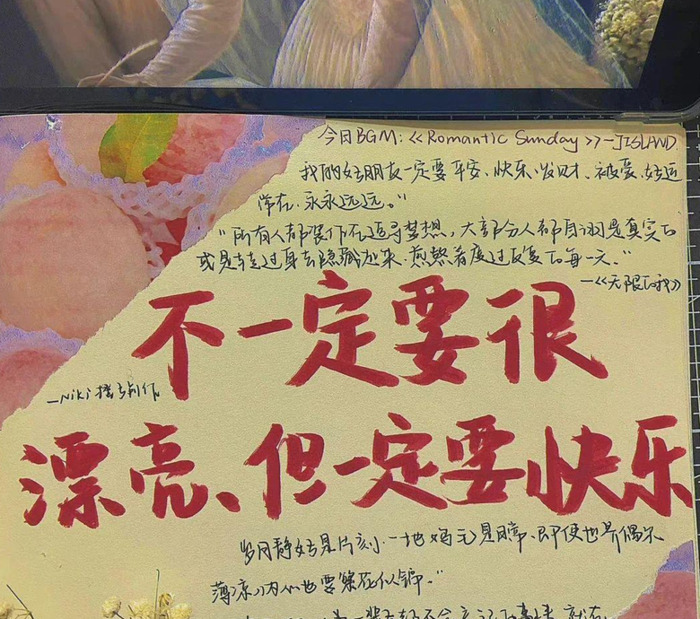 今日BGM:<<Romantic Sunday>>—JISLAND
我的好朋友一定要平安、快乐、发财、被爱、好运
常在、永永远远。"
"所有人都装作在追寻梦想,大部分人都自诩是真实的
或是转过身去隐藏起来,煎熬着度过反复的每一天。"
—<<无限的我>>
不一定要很
—Niki
漂亮、但一定要快乐
岁月静好是片刻、一地鸡毛是日常、即便世界偶尔
薄凉,内心也要繁花似锦。"